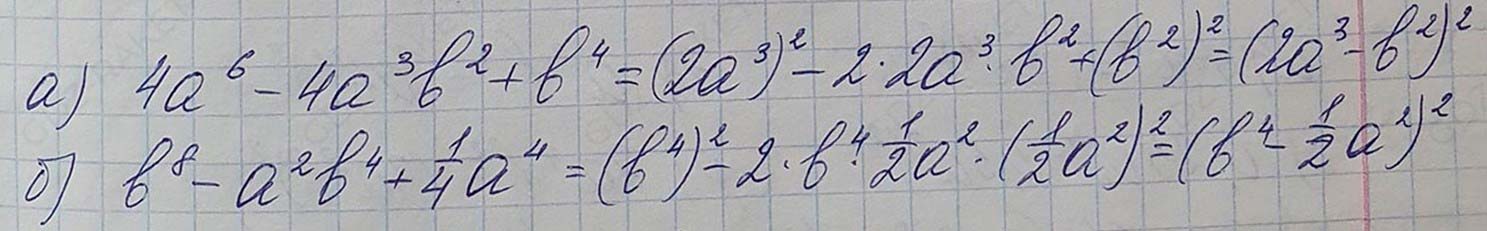 а) 4a⁶ - 4a³b² + b⁴ = (2a³)² - 2·2a³·b² + (b²)² = (2a³ - b²)²
б) b⁸ - a²b⁴ + 1/4 a⁴ = (b⁴)² - 2·b⁴·1/2 a² · (1/2 a²)² = (b⁴ - 1/2 a²)²